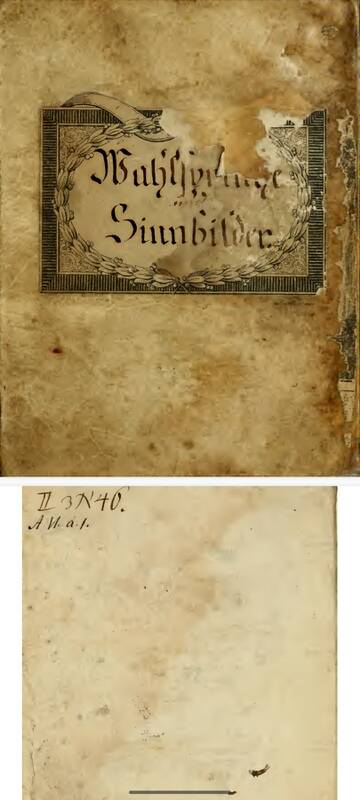 Wahlsprünge
und
Sinnbilder.
II 3 N 46.
A VI. a. 1.